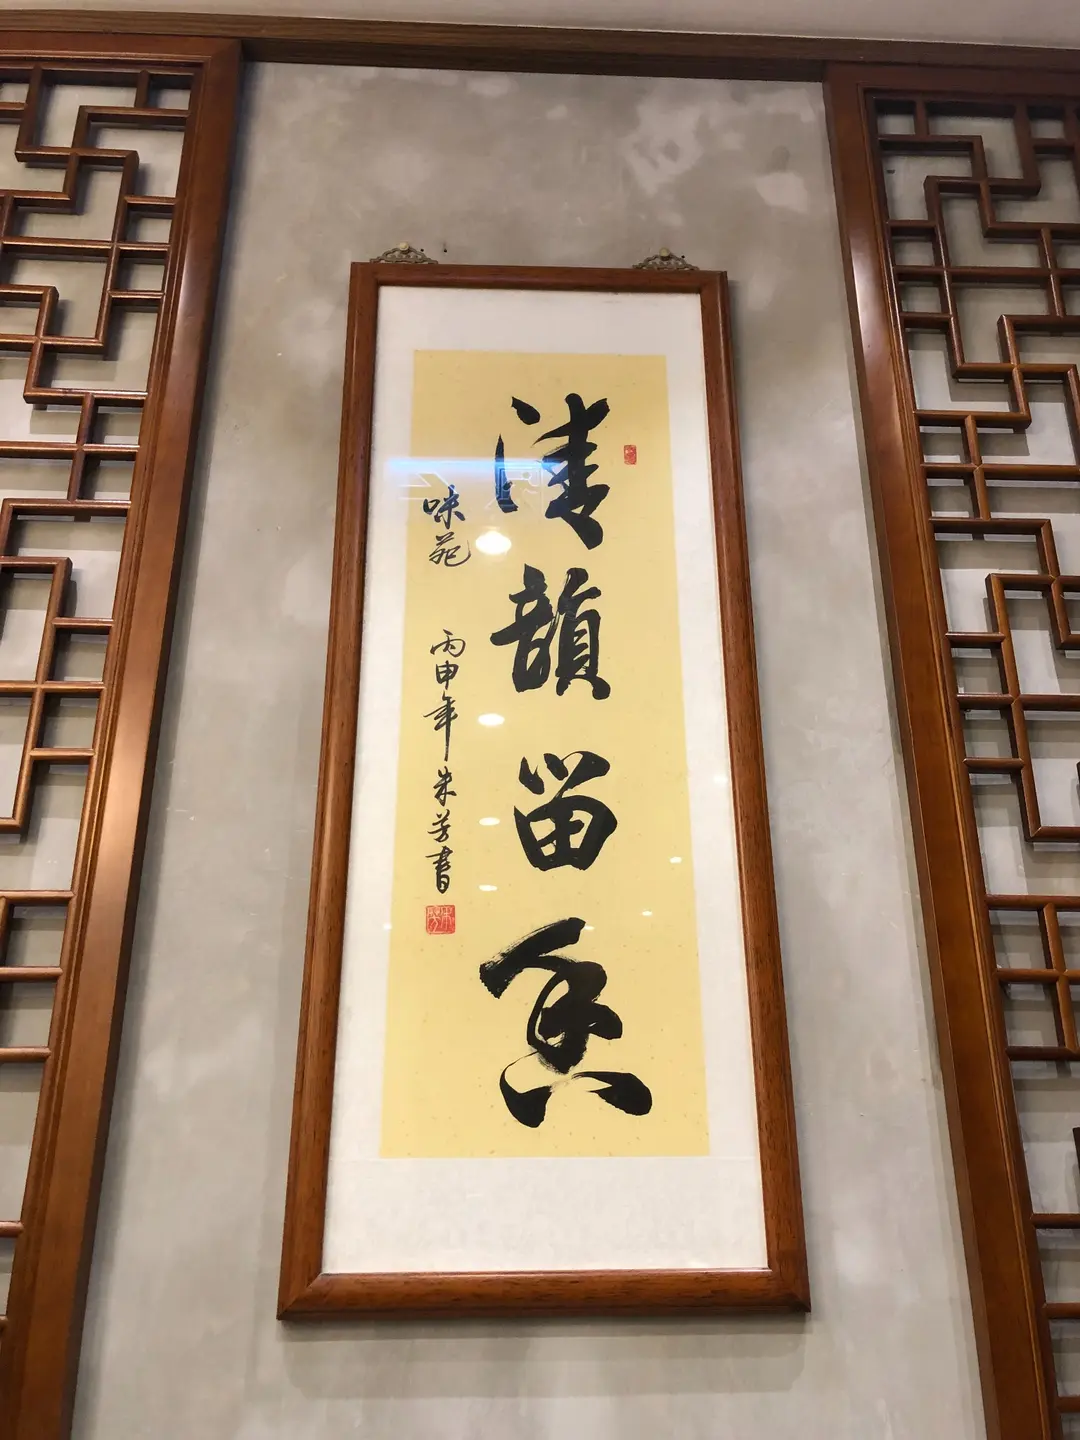 清韻留香
味苑
丙申年朱芳書